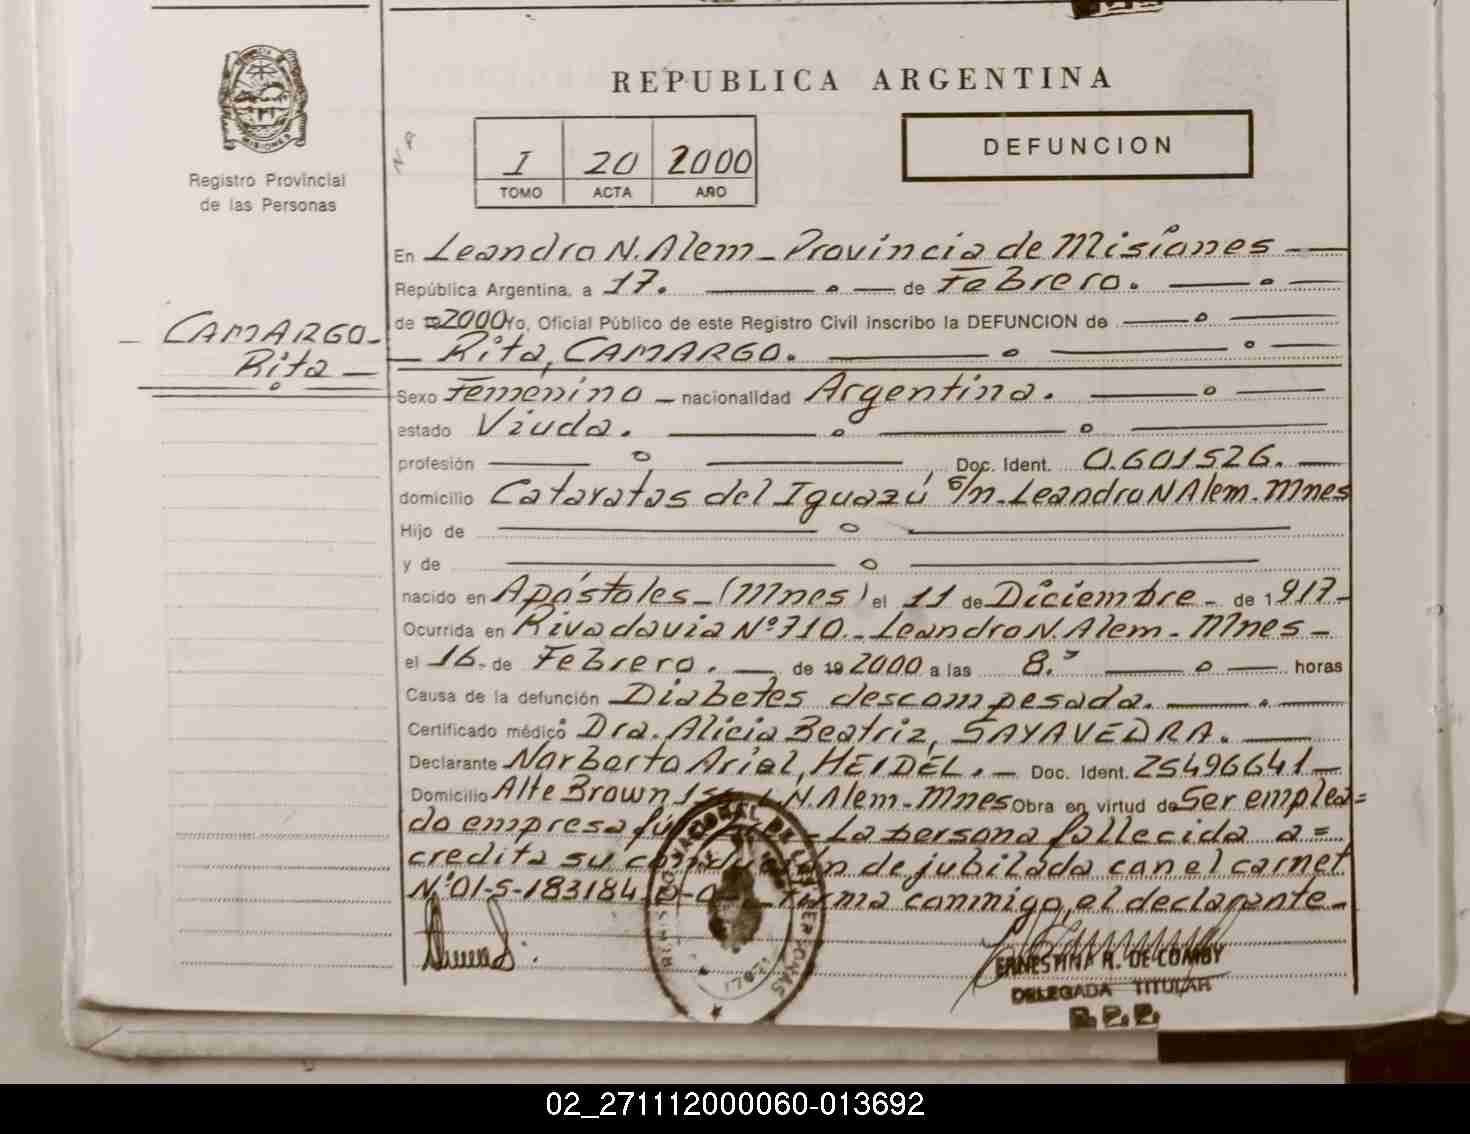 REPUBLICA ARGENTINA
MISIONES
Registro Provincial
de las Personas
I 20 2000
TOMO ACTA AÑO
DEFUNCION
CAMARGO-
Rita-
En Leandro N. Alem - Provincia de Misiones
República Argentina, a 17. de Febrero.
de 2000 Yo, Oficial Público de este Registro Civil inscribo la DEFUNCION de
Rita, CAMARGO.
Sexo Femenino - nacionalidad Argentina.
estado Viuda.
profesión Doc. Ident. 0.601526.
domicilio Cataratas del Iguazú s/n. Leandro N Alem. Mnes
Hijo de
y de
nacido en Apóstoles - (Mnes) el 11 de Diciembre - de 1917-
Ocurrida en Rivadavia Nº 710. Leandro N. Alem - Mnes -
el 16 - de Febrero. de 19 2000 a las 8. horas
Causa de la defunción Diabetes descompesada.
Certificado médico Dra. Alicia Beatriz, SAYAVEDRA.
Declarante Norberto Ariel, HEIDEL. - Doc. Ident. 25496641-
Domicilio Alte Brown L.N. Alem - Mnes Obra en virtud de Ser emplea=
do empresa - La persona fallecida a=
credita su condición de jubilada con el carnet
Nº 01-5-183184 firma conmigo, el declarante -
ERNESTINA R. DE COMBY
DELEGADA TITULAR
R.P.P.
02_271112000060-013692